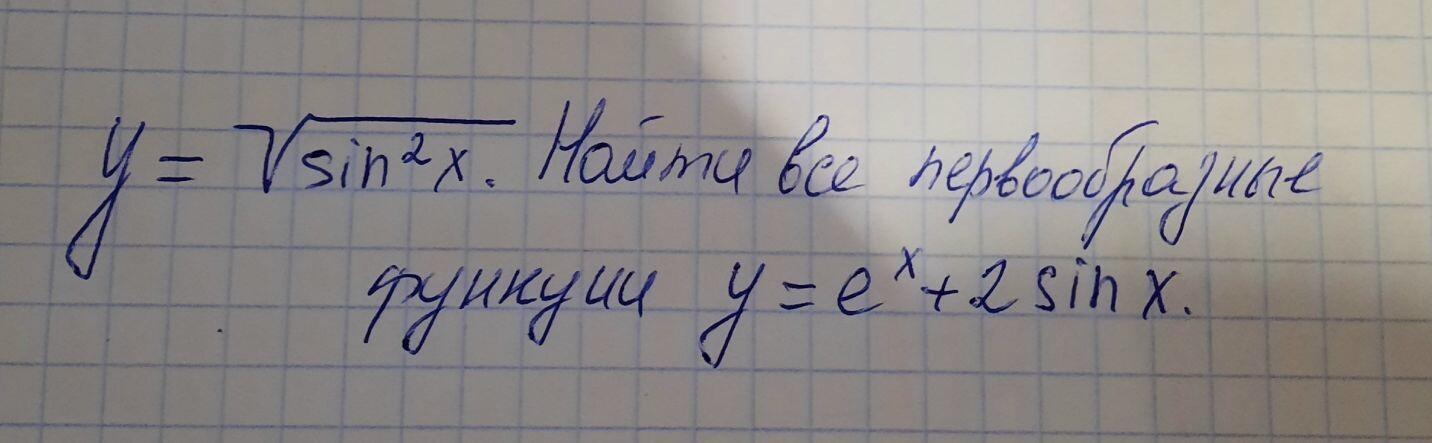 y = √sin²x. Найти все первообразные
функции y = eˣ + 2 sin x.